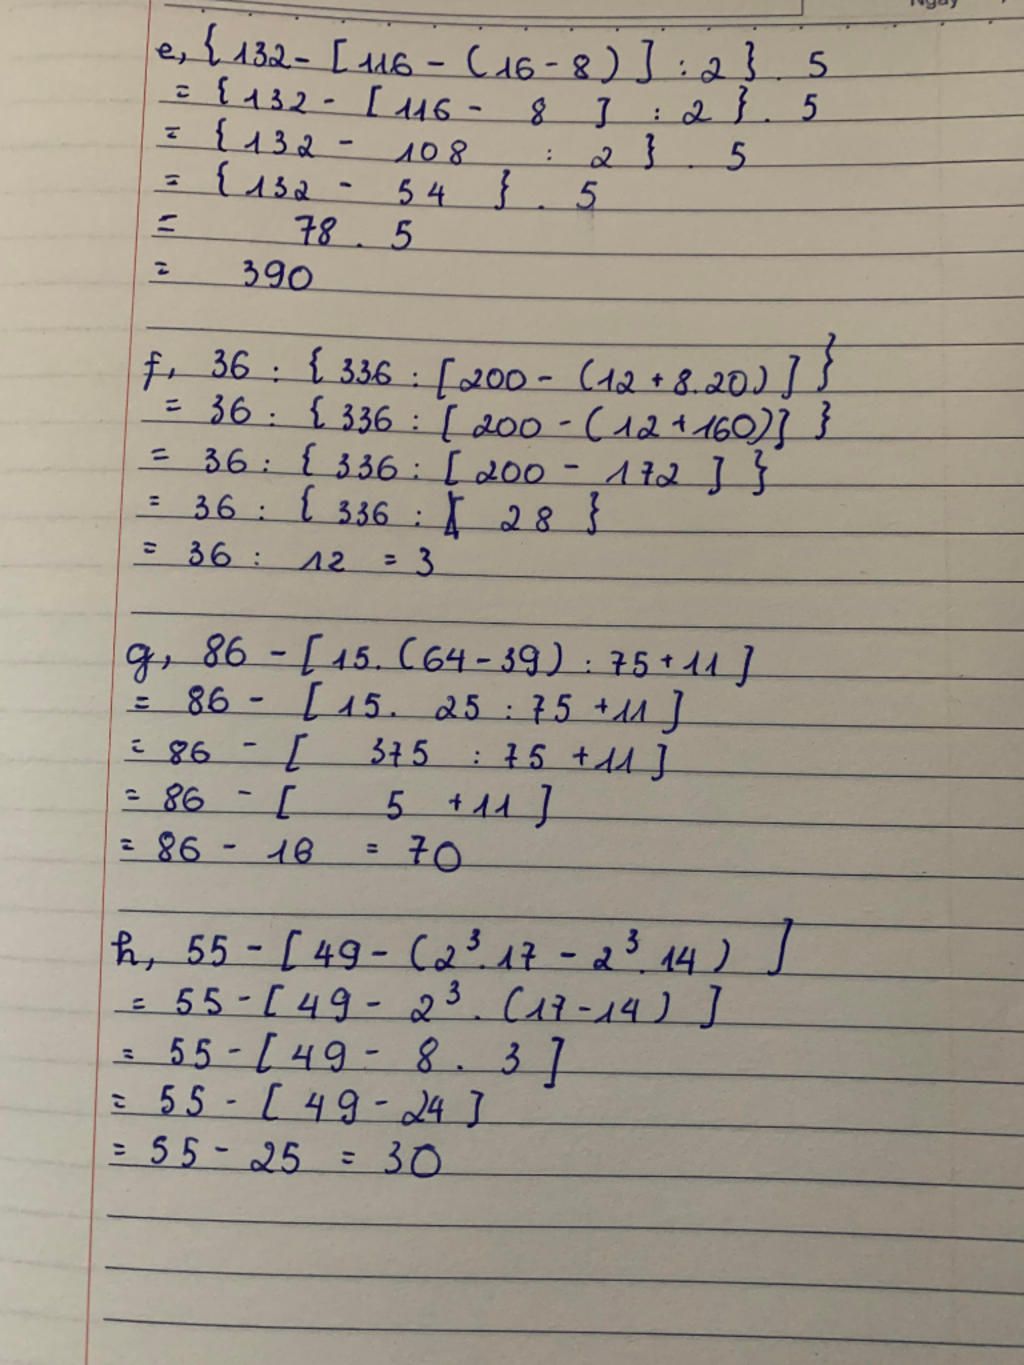 Ngày
e, {132 - [116 - (16 - 8)] : 2} . 5
= {132 - [116 - 8 ] : 2} . 5
= {132 - 108 : 2} . 5
= {132 - 54 } . 5
= 78 . 5
= 390
f, 36 : {336 : [200 - (12 + 8.20)]}
= 36 : {336 : [200 - (12 + 160)]}
= 36 : {336 : [200 - 172 ]}
= 36 : {336 : 28 }
= 36 : 12 = 3
g, 86 - [15. (64 - 39) : 75 + 11]
= 86 - [15. 25 : 75 + 11]
= 86 - [ 375 : 75 + 11]
= 86 - [ 5 + 11]
= 86 - 16 = 70
h, 55 - [49 - (2³.17 - 2³.14)]
= 55 - [49 - 2³ . (17 - 14)]
= 55 - [49 - 8 . 3]
= 55 - [49 - 24]
= 55 - 25 = 30